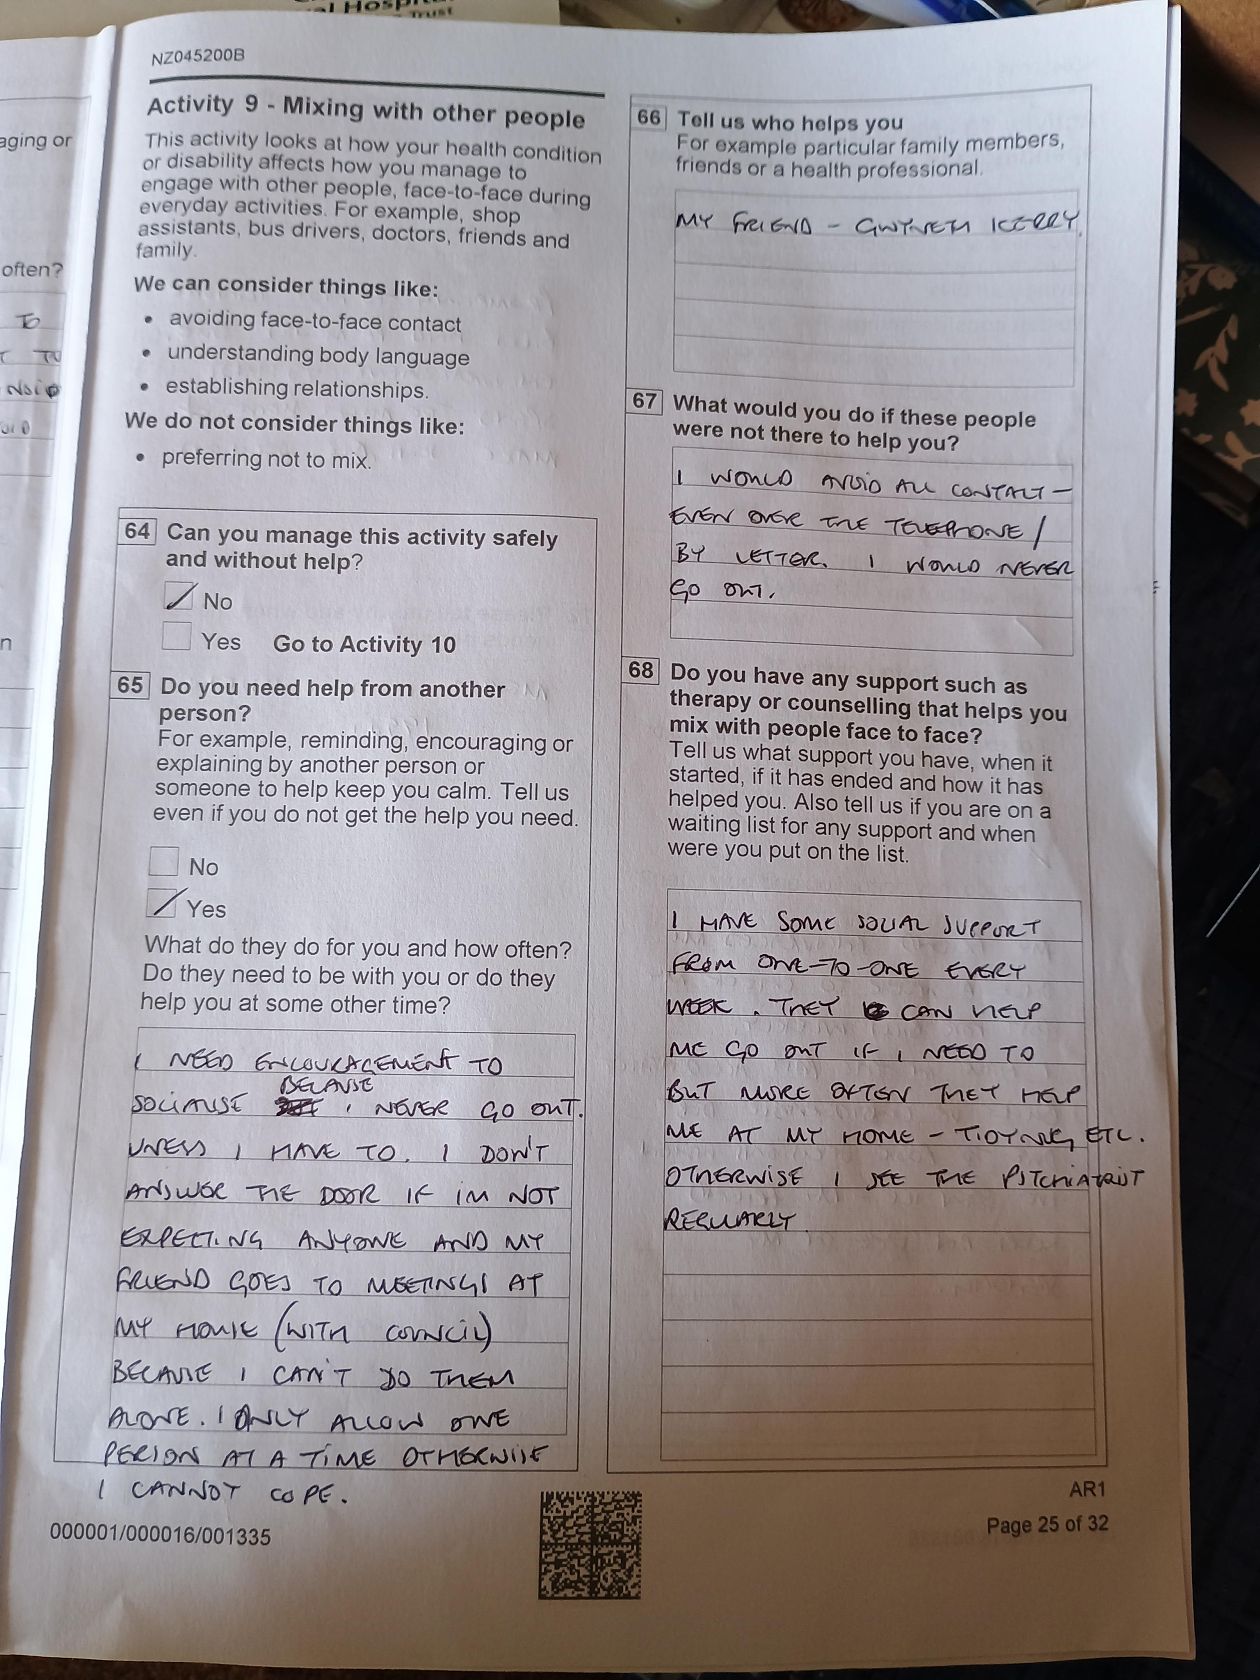 al Hospital
Trust
aging or
often?
TO
NZ045200B
Activity 9 - Mixing with other people
This activity looks at how your health condition
or disability affects how you manage to
engage with other people, face-to-face during
everyday activities. For example, shop
assistants, bus drivers, doctors, friends and
family.
We can consider things like:
• avoiding face-to-face contact
• understanding body language
• establishing relationships.
We do not consider things like:
• preferring not to mix.
64 Can you manage this activity safely
and without help?
No
Yes Go to Activity 10
65 Do you need help from another
person?
For example, reminding, encouraging or
explaining by another person or
someone to help keep you calm. Tell us
even if you do not get the help you need.
No
Yes
What do they do for you and how often?
Do they need to be with you or do they
help you at some other time?
I NEED ENCOURAGEMENT TO
BECAUSE
SOCIALISE I NEVER GO OUT.
UNESS I HAVE TO. I DON'T
ANSWER THE DOOR IF IM NOT
EXPECTING ANYONE AND MY
FRIEND GOES TO MEETINGS AT
MY HOUSE (WITH COUNCIL)
BECAUSE I CAN'T DO THEM
ALONE. I ONLY ALLOW ONE
PERSON AT A TIME OTHERWISE
I CANNOT COPE.
000001/000016/001335
66 Tell us who helps you
For example particular family members,
friends or a health professional.
MY FRIEND - GWYNETH KERRY.
67 What would you do if these people
were not there to help you?
I WOULD AVOID ALL CONTACT -
EVEN OVER THE TELEPHONE /
BY LETTER. I WOULD NEVER
GO OUT.
68 Do you have any support such as
therapy or counselling that helps you
mix with people face to face?
Tell us what support you have, when it
started, if it has ended and how it has
helped you. Also tell us if you are on a
waiting list for any support and when
were you put on the list.
I HAVE SOME SOCIAL SUPPORT
FROM ONE-TO-ONE EVERY
WEEK. THEY CAN HELP
ME GO OUT IF I NEED TO
BUT MORE OFTEN THEY HELP
ME AT MY HOME - TIDYING, ETC.
OTHERWISE I SEE THE PSYCHIATRIST
REGULARLY
AR1
Page 25 of 32